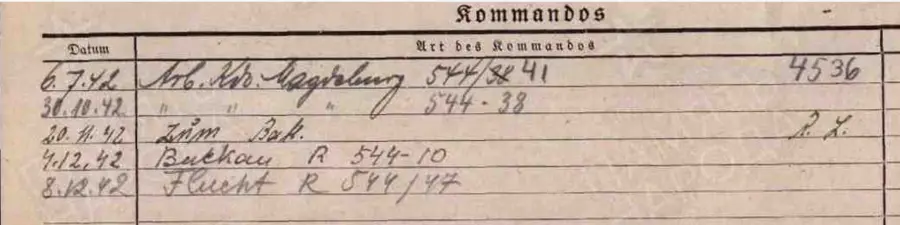 Kommandos
Datum Art des Kommandos
6.7.42 Arb. Kdo. Magdeburg 544/38 41 4536
30.10.42 " " " 544-38
20.11.42 Zum Bak. R. L.
4.12.42 Buckau R 544-10
8.12.42 Flucht R 544/47